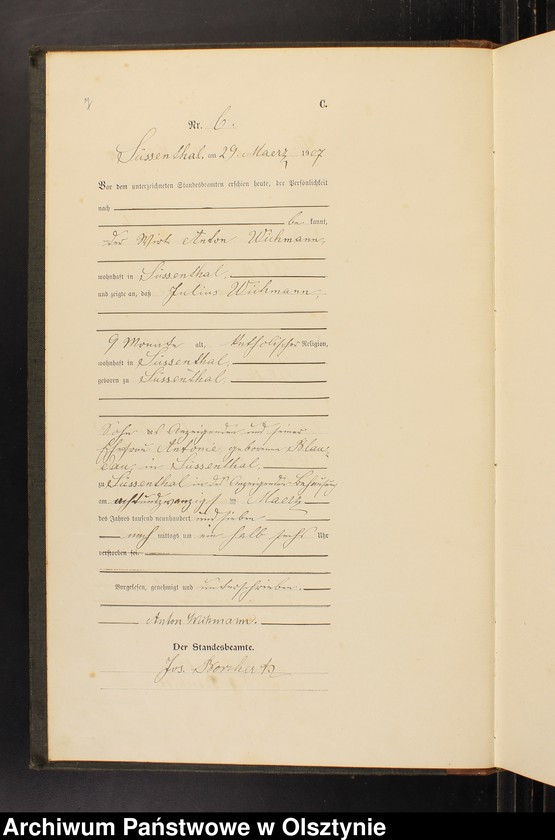 C.
Nr. 6.
Süssenthal, am 29 Maerz 1907
Vor dem unterzeichneten Standesbeamten erschien heute, der Persönlichkeit
nach
be kannt,
der Wirt Anton Wichmann,
wohnhaft in Süssenthal,
und zeigte an, daß Julius Wichmann,
9 Monate alt, katholischer Religion,
wohnhaft in Süssenthal,
geboren zu Süssenthal,
Sohn des Anzeigenden und seiner
Ehefrau Antonie geborenen
in Süssenthal,
zu Süssenthal in des Anzeigenden Behausung
am achtundzwanzigst en Maerz
des Jahres tausend neunhundert und sieben
nach mittags um ein halb sechs Uhr
verstorben sei
Vorgelesen, genehmigt und unterschrieben.
Anton Wichmann.
Der Standesbeamte.
Jos.
Archiwum Państwowe w Olsztynie